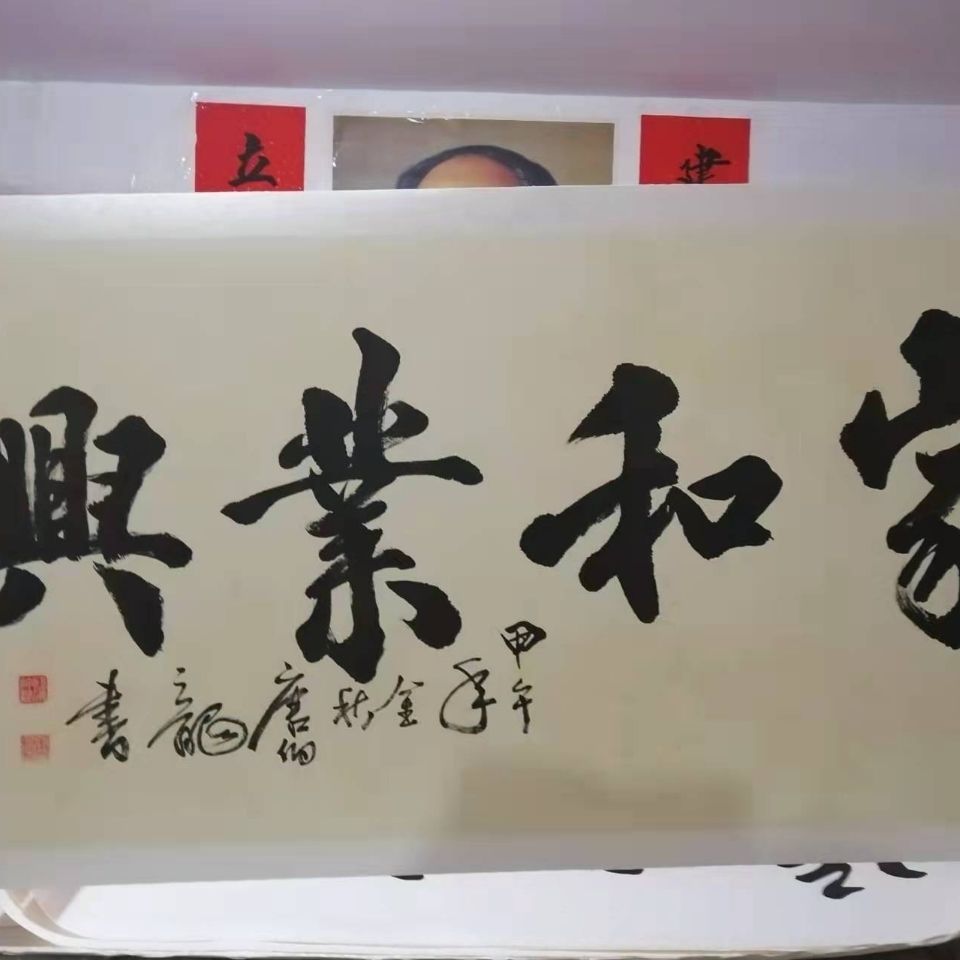 立
建
家和業興
甲午年金秋唐龍書